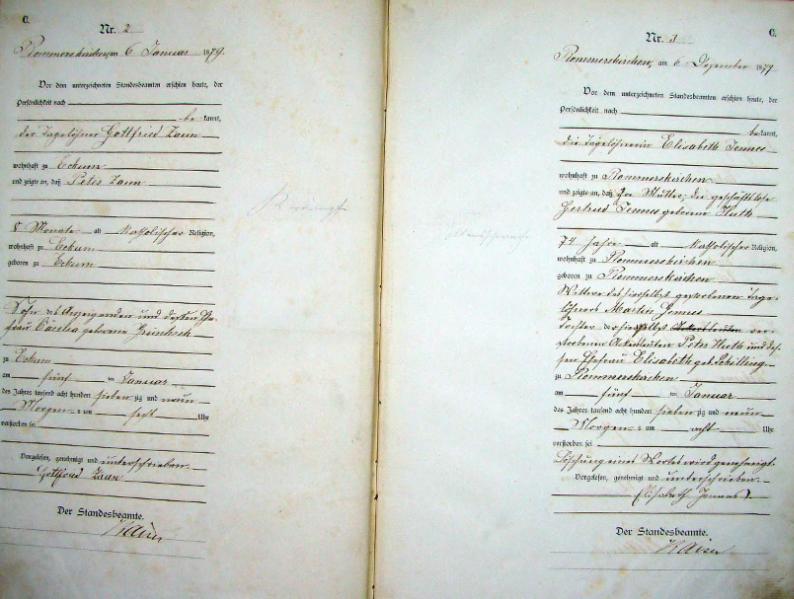 C.
Nr. 2
Rommerskirchen, am 6 Januar 1879.
Vor dem unterzeichneten Standesbeamten erschien heute, der
Persönlichkeit nach
be kannt,
der Tagelöhner Gottfried Zaun
wohnhaft zu Eckum
und zeigte an, daß Peter Zaun
8 Monate alt Katholischer Religion,
wohnhaft zu Eckum
geboren zu Eckum
Sohn des Anzeigenden und dessen Ehe
frau Cäcilia geborene
zu Eckum
am fünf ten Januar
des Jahres tausend acht hundert sieben zig und neun
Morgens um sechs Uhr
verstorben sei
Vorgelesen, genehmigt und unterschrieben
Gottfried Zaun
Der Standesbeamte.
C.
Nr. 3
Rommerskirchen, am 6 Dezember 1879
Vor dem unterzeichneten Standesbeamten erschien heute, der
Persönlichkeit nach
be kannt,
die Tagelöhnerin Elisabeth Jennes
wohnhaft zu Rommerskirchen
und zeigte an, daß ihre Mutter, die geschäftslose
Gertrud Jennes geborene Huth
74 Jahre alt Katholischer Religion,
wohnhaft zu Rommerskirchen
geboren zu Rommerskirchen
Wittwe des hierselbst gestorbenen Tage
löhners Martin Jennes
Tochter der hierselbst Ackersleuten ver
storbenen Ackersleuten Peter Huth und des
sen Ehefrau Elisabeth geb. Schilling
zu Rommerskirchen
am fünf ten Januar
des Jahres tausend acht hundert sieben zig und neun
Morgens um acht Uhr
verstorben sei
Löschung eines Wortes wird genehmigt.
Vorgelesen, genehmigt und unterschrieben
Elisabeth Jennes
Der Standesbeamte.